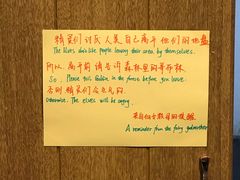 精灵们讨厌人类自己离开他们的地盘
The Elves don't like people leaving their area by themselves.
所以, 离开前请告诉森林里的哥布林
So, Please tell Goblin in the forest before you leave.
否则精灵们会生气的
Otherwise, the elves will be angry.
来自仙女教母的提醒
A reminder from the fairy godmother